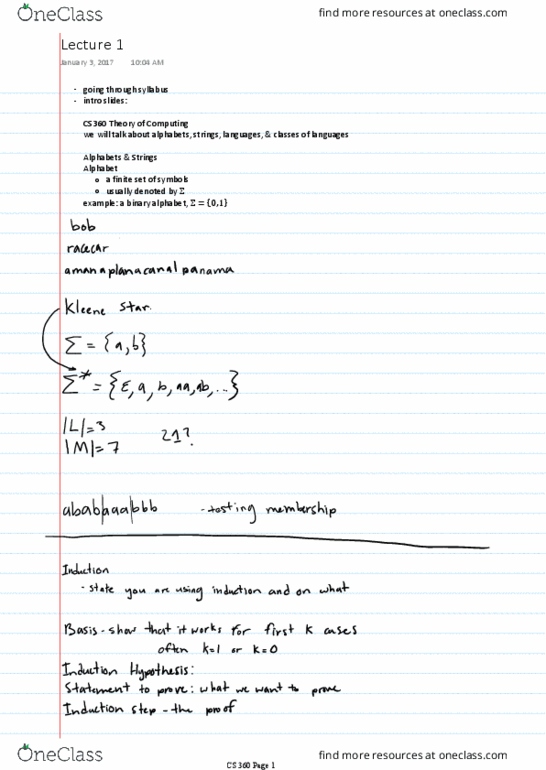 OneClass
find more resources at oneclass.com
Lecture 1
January 3, 2017 10:04 AM
- going through syllabus
- intro slides:
CS 360 Theory of Computing
we will talk about alphabets, strings, languages, & classes of languages
Alphabets & Strings
Alphabet
o a finite set of symbols
o usually denoted by Σ
example: a binary alphabet, Σ = {0,1}
bob
racecar
amanaplanacanalpanama
Kleene star
Σ = {a,b}
Σ* = {ε, a, b, aa, ab, ...}
|L|=3
|M|=7 21?
abab|aa|bbb - testing membership
Induction
- state you are using induction and on what
Basis - show that it works for first k cases
often k=1 or k=0
Induction Hypothesis:
Statement to prove: what we want to prove
Induction step - the proof
OneClass
find more resources at oneclass.com
CS 360 Page 1